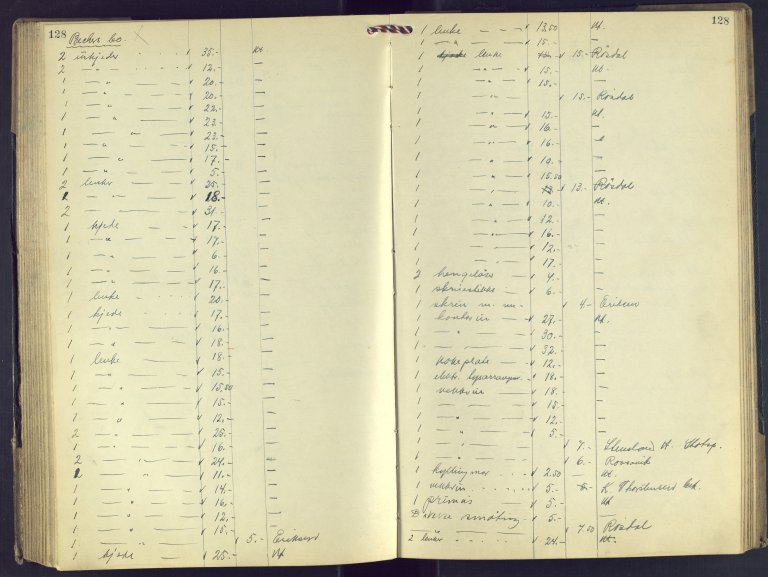 128
2 35.- Ut
2 " 12.- —
1 " 20.- —
1 " 20.- —
1 " 22.- —
1 " 23.- —
1 " 23.- —
1 " 15.- —
1 " 17.- —
1 " 5.- —
2 lenker 25.- —
1 " 18.- —
2 " 31.- —
1 kjede 17.- —
1 " 17.- —
1 " 6.- —
1 " 16.- —
1 " 17.- —
1 lenke 20.- —
1 kjede 17.- —
1 " 16.- —
1 " 18.- —
1 lenke 18.- —
1 " 15.- —
1 " 15.50 —
1 " 15.- —
1 " 12.- —
2 " 25.- —
1 " 16.- —
2 " 24.- —
2 " 11.- —
1 " 14.- —
1 " 16.- —
1 " 12.- —
1 " 15.- —
1 " 5.- Eriksen
1 kjede 25.- Ut
128
1 lenke 13.50 Ut.
1 " 15.- —
1 lenke 15.- Rösdal
1 " 15.- Ut.
1 " 15.- —
1 " 15.- Rösdal
1 " 15.- Ut.
1 " 16.- —
1 " 16.-
1 " 19.- —
1 " 15.50 —
1 " 13.- Rösdal
1 " 10.- Ut.
1 " 12.- —
1 " 16.- —
1 " 12.- —
1 " 17.- —
2 hengelåss 4.- —
1 6.- —
1 skrin m. 4.- Eriksen
1 27.- Ut.
1 " 30.- —
1 " 32.- —
1 kokeplate 12.- —
1 elektr. 18.- —
1 vekkeur 18.- —
1 " 15.- —
1 " 12.- —
1 " 5.- —
1 " 7.-
1 " 6.-
1 2.50 Ut.
1 vekkeur 5.- K. Thorstensen
1 primus 5.- Ut
småting 5.-
7.50 Rösdal
2 24.- Ut.